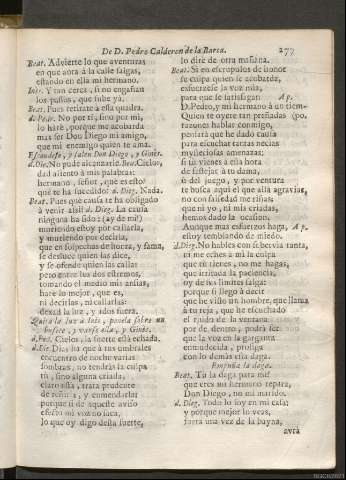 De D. Pedro Calderon de la Barca. 277
Beat. Advierte lo que aventuras
en que aora à la calle salgas,
estando en ella mi hermano.
Ines. Y tan cerca, si no engañan
los passos, que sube ya.
Beat. Pues retirate à essa quadra.
d. Pedr. No por ti, sino por mi,
lo harè, porque me acobarda
mas ser Don Diego mi amigo,
que mi enemigo quien te ama.
Escondese, y salen Don Diego, y Gines.
d. Die. No pude alcanzarlo. Beat. Cielos,
dad aliento à mis palabras:
hermano, señor, què es esto?
què te ha sucedido? d. Dieg. Nada.
Beat. Pues què causa te ha obligado
à venir assi? d. Dieg. La causa
ninguna ha sido: (ay de mi!)
muriendo estoy por callarla,
y muriendo por decirla,
que en sospechas de honra, y fama,
se desluce quien las dice,
y se ofende quien las calla:
pero entre los dos estremos,
tomando el medio mis ansias,
harè lo mejor, que es,
ni decirlas, ni callarlas:
dexad la luz, y idos fuera.
Quita la luz à Inès, ponela sobre un
bufete, y vanse ella, y Gines.
d. Ped. Cielos, la puerta està echada.
d. Die. Dios ha que à tus umbrales
encuentro de noche varias
sombras, no tendràs la culpa
tu, sino alguna criada,
claro està, trata prudente
de reñirla, y enmendarla;
porque si de aqueste aviso
efectos mi voz no saca,
lo que oy digo desta suerte,
lo dirè de otra mañana.
Beat. Si en escrupulos de honor
se culpa quien se acobarda,
esfuercese la voz mia,
para que se satisfagan Ap.
D. Pedro, y mi hermano à un tiempo.
Quien te oyere tan pesadas
razones hablar conmigo,
pensarà que he dado causa
para escuchar tantas necias
mysteriosas amenazas:
si tu vienes à essa hora
de festejar à tu dama,
ò del juego, y por ventura
te busca aqui el que allà agravias,
no con falsedad me riñas:
que ni yo, ni mis criadas,
hemos dado la ocasion.
Aunque mas esfuerzos haga, Ap.
estoy temblando de miedo.
d. Dieg. No hables con sobervia tanta,
ni me eches à mi la culpa
que tu tienes, no me hagas,
que irritada la paciencia,
oy de sus limites salga:
porque si llego à decir
que he visto un hombre, que llama
à tu reja, que he escuchado
el ruido de la ventana
por de dentro, podrà ser
que la voz en la garganta
enmudecida, prosiga
con lo demàs esta daga.
Empuña la daga.
Beat. Tù la daga para mi?
que eres mi hermano repara,
Don Diego, no mi marido.
d. Dieg. Todo lo soy en mi casa;
y porque mejor lo veas,
fuera una vez de la bayna,
avrà